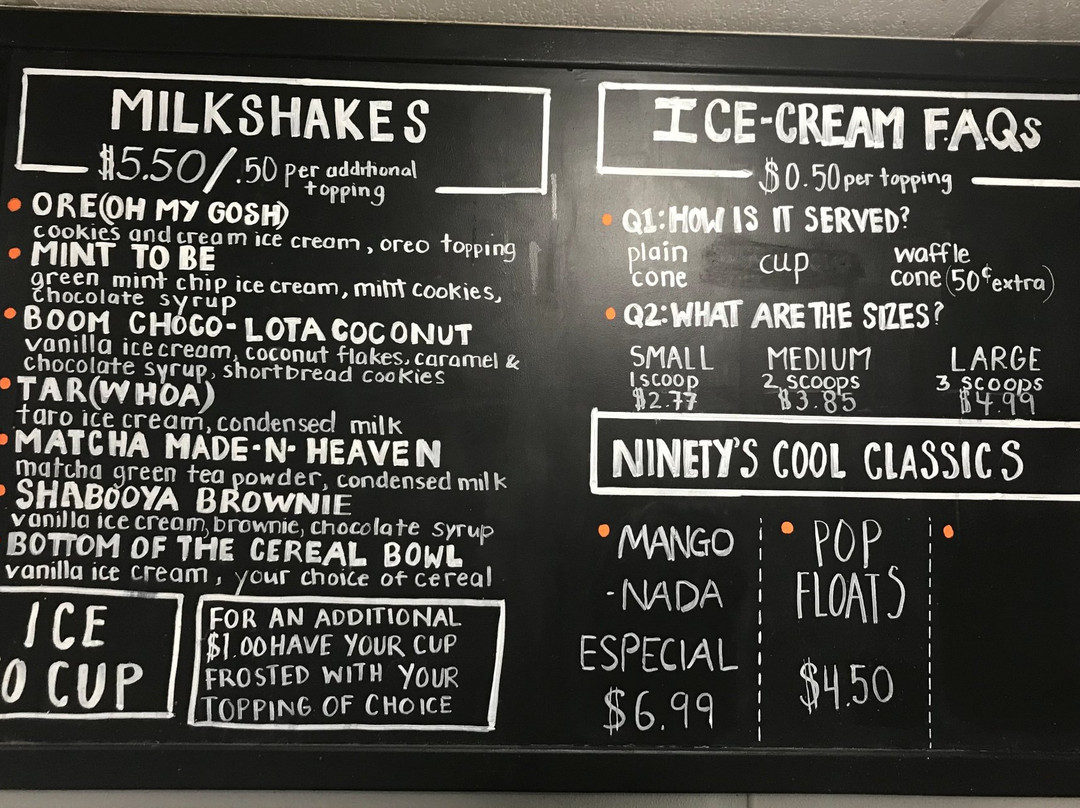 MILKSHAKES
$5.50/.50 per additional
topping
ORE(OH MY GOSH)
cookies and cream ice cream, oreo topping
MINT TO BE
green mint chip ice cream, mint cookies,
chocolate syrup
BOOM CHOCO-LOTA COCONUT
vanilla ice cream, coconut flakes, caramel &
chocolate syrup, shortbread cookies
TAR(WHOA)
taro ice cream, condensed milk
MATCHA MADE-N-HEAVEN
matcha green tea powder, condensed milk
SHABOOYA BROWNIE
vanilla ice cream, brownie, chocolate syrup
BOTTOM OF THE CEREAL BOWL
vanilla ice cream, your choice of cereal
ICE
CUP
FOR AN ADDITIONAL
$1.00 HAVE YOUR CUP
FROSTED WITH YOUR
TOPPING OF CHOICE
ICE-CREAM FAQs
$0.50 per topping
Q1: HOW IS IT SERVED?
plain cone cup waffle cone (50¢ extra)
Q2: WHAT ARE THE SIZES?
SMALL MEDIUM LARGE
1 scoop 2 scoops 3 scoops
$2.77 $3.85 $4.99
NINETY'S COOL CLASSICS
MANGO
-NADA
ESPECIAL
$6.99
POP
FLOATS
$4.50